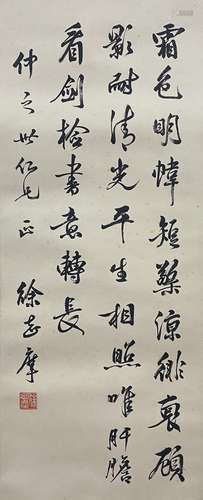 霜色明幃短檠涼徘顧
影耐清光平生相照唯肝膽
看劍檢書意轉長
仲之世仁兄正 徐志摩